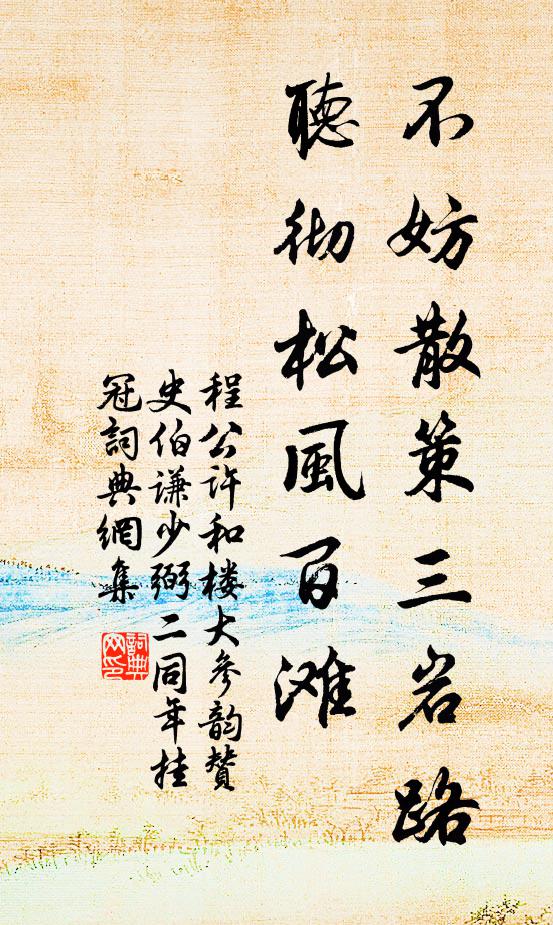 不妨散策三岩路
聽彻松風百滩
程公许和楼大參韵贊
史伯谦少弼二同年挂
冠詞典網集
詞典网印